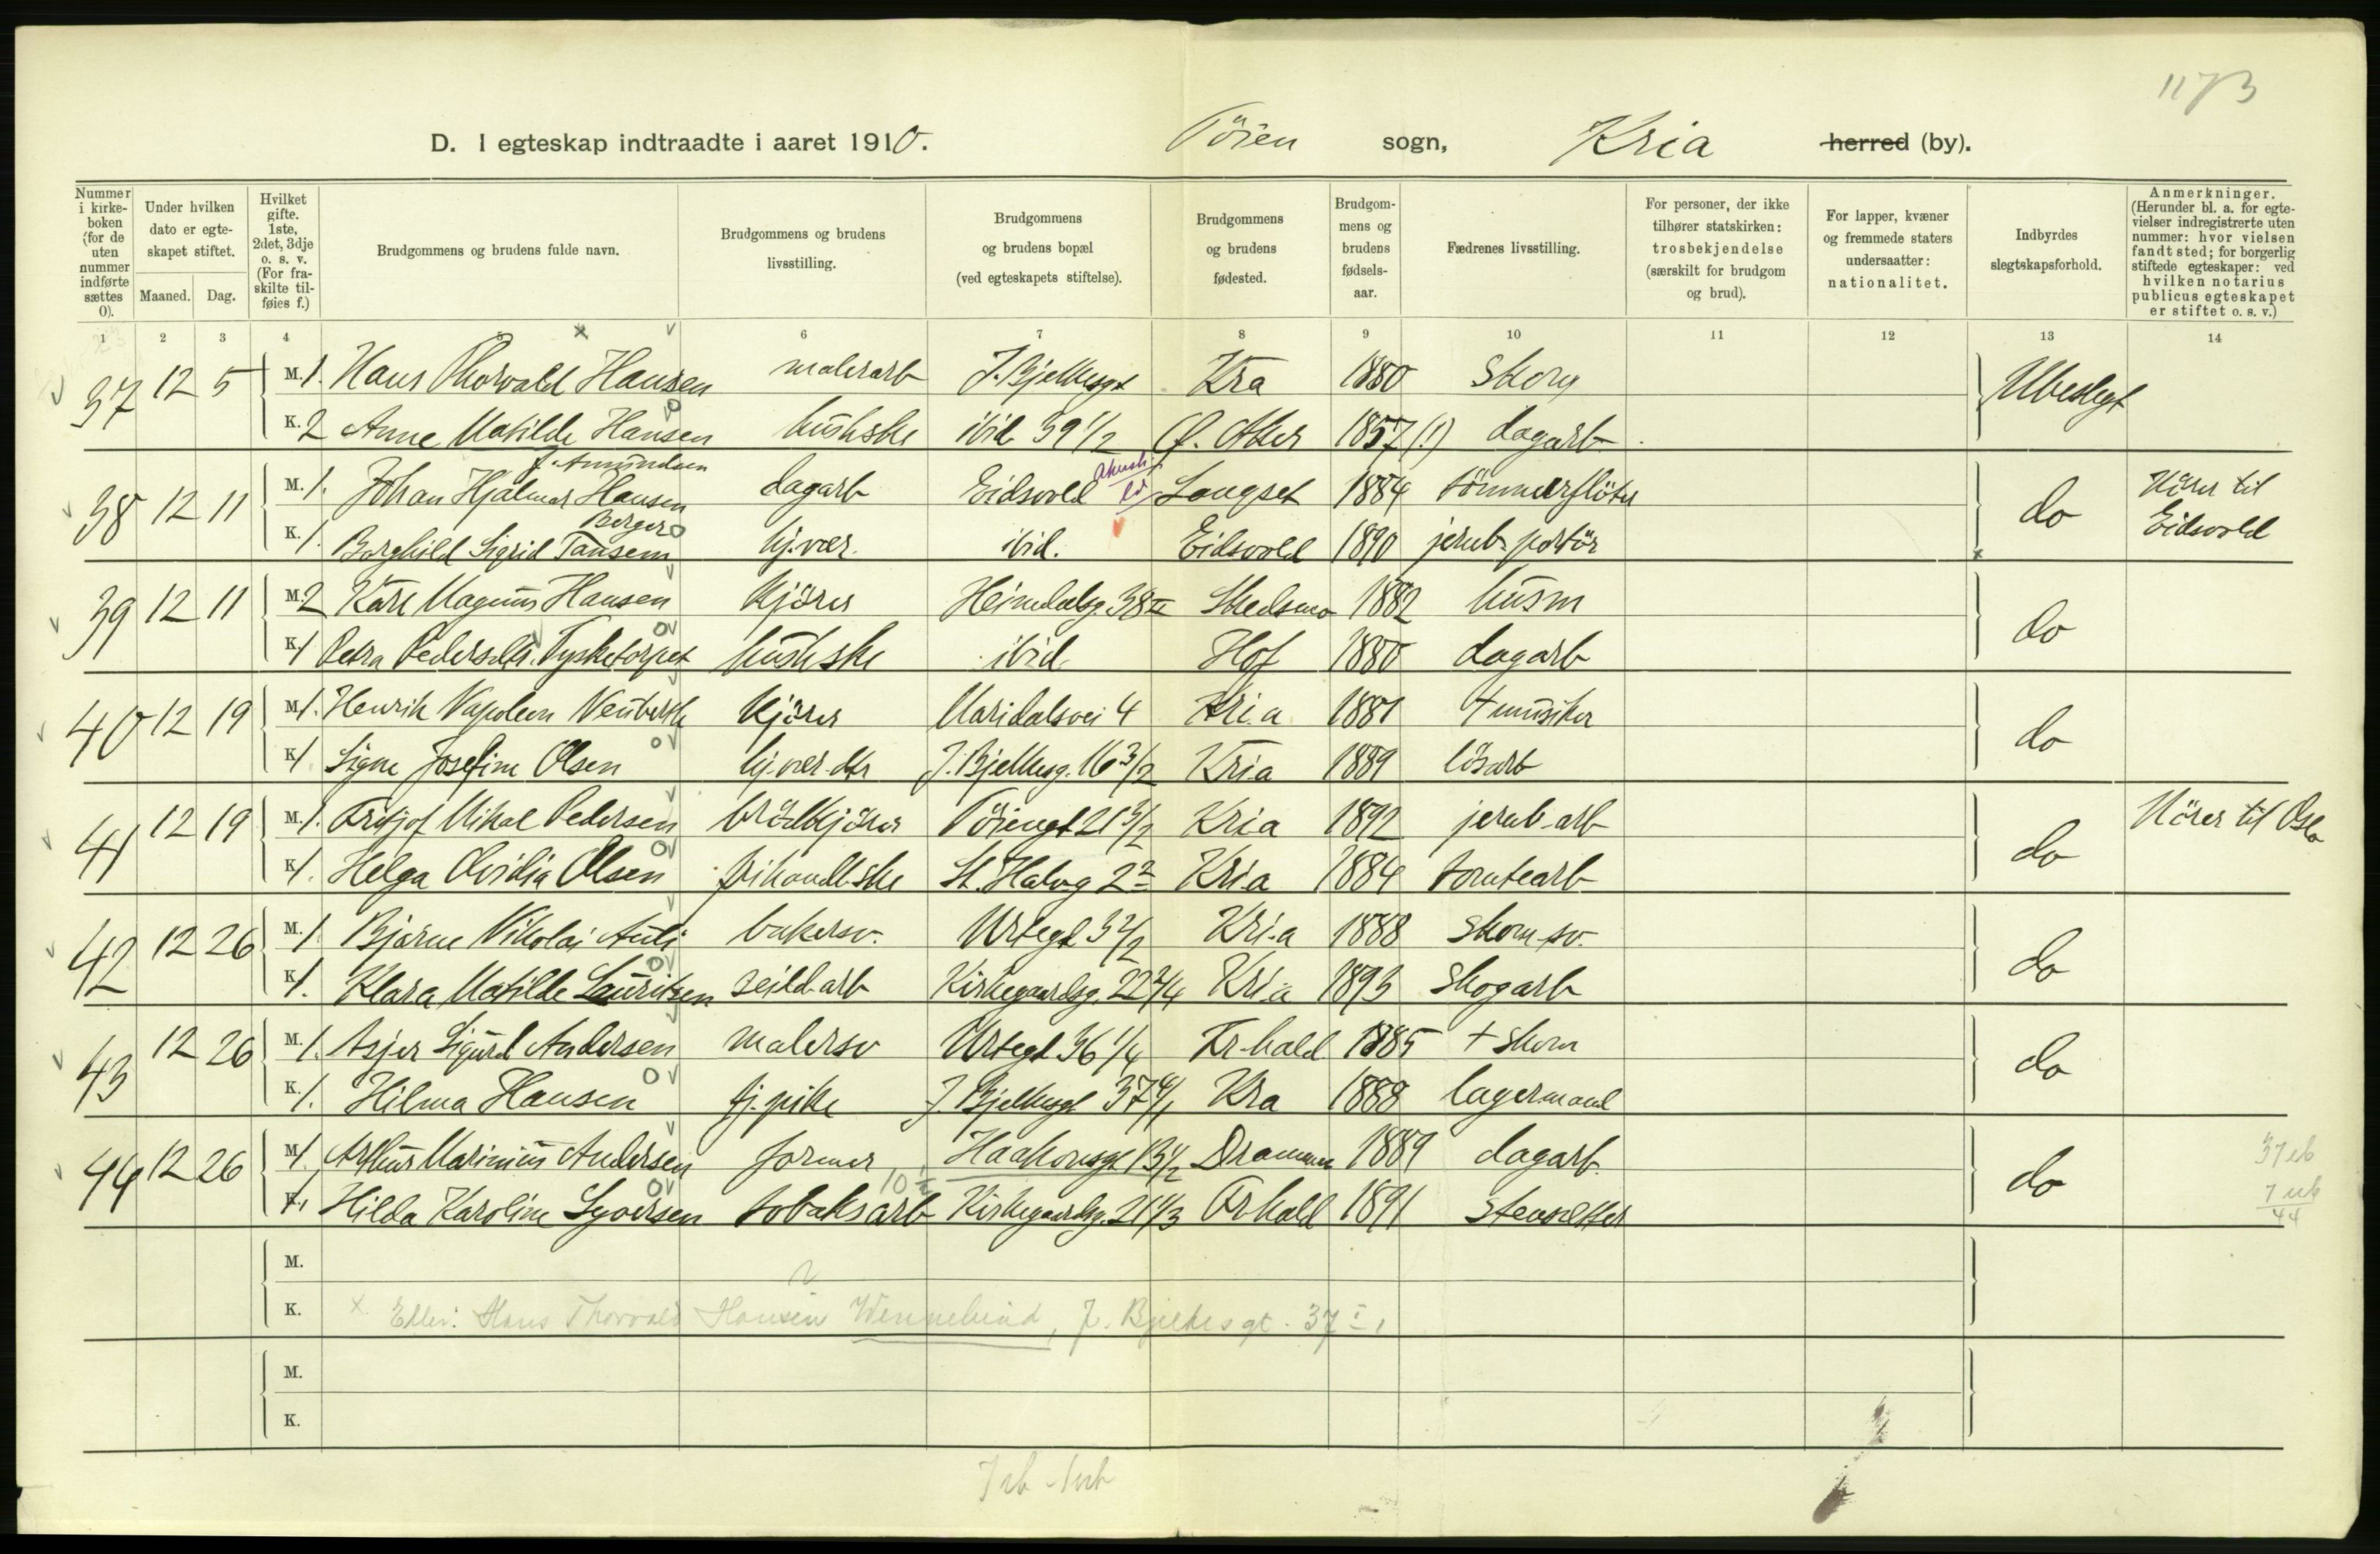 1173
D. I egteskap indtraadte i aaret 1910. Töien sogn, Kria herred (by).
Nummer i kirkeboken (for de uten nummer indførte sættes 0).
Under hvilken dato er egteskapet stiftet.
Maaned. Dag.
Hvilket gifte. 1ste, 2det, 3dje o. s. v. (For fraskilte tilføies f.)
Brudgommens og brudens fulde navn.
Brudgommens og brudens livsstilling.
Brudgommens og brudens bopæl (ved egteskapets stiftelse).
Brudgommens og brudens fødested.
Brudgommens og brudens fødselsaar.
Fædrenes livsstilling.
For personer, der ikke tilhører statskirken: trosbekjendelse (særskilt for brudgom og brud).
For lapper, kvæner og fremmede staters undersaatter: nationalitet.
Indbyrdes slegtskapsforhold.
Anmerkninger. (Herunder bl. a. for egtevielser indregistrerte uten nummer: hvor vielsen fandt sted; for borgerlig stiftede egteskaper: ved hvilken notarius publicus egteskapet er stiftet o. s. v.)
1 2 3 4 5 6 7 8 9 10 11 12 13 14
37 12 5 M. 1. Hans Thorvald Hansen malerarb J. Bjelkesgt Kra 1880 Skom Ubeslegt
K. 2 Anne Matilde Hansen hushske ibid 39 1/2 Ø. Aker 1857 (!) dagarb
f. Amundsen
38 12 11 M. 1. Johan Hjalmar Hansen dagarb Eidsvold Langset 1884 tömmerflöter do Hörer til Eidsvold
Berger
K. 1. Borghild Sigrid Tansem hj. vær. ibid. Eidsvold 1890 jernb. portör
39 12 11 M. 2 Karl Magnus Hansen Kjörer Heimdalsg. 38 II Skedsmo 1882 husm do
K. 1 Petra Pedersdtr. Tysketorpet hushske ibid Hof 1880 dagarb
40 12 19 M. 1. Henrik Napoleon Neuberth Kjörer Maridalsvei 4 Kria 1881 + musiker do
K. 1 Signe Josefine Olsen hj. vær. dtr J. Bjelkesg. 16 3/2 Kria 1889 lösarb
41 12 19 M. 1. Fritjof Mikal Pedersen brödkjörer Töiengt 21 3/2 Kria 1892 jernb. arb do Hörer til Oslo
K. 1. Helga Ovidia Olsen frihandl.ske St. Halvg 2 2 Kria 1884 tomtearb
42 12 26 M. 1 Bjarne Nikolai Auli bakersv. Urtegt 3 2/2 Kria 1888 Skom. sv. do
K. 1. Klara Matilde Lauritsen seild. arb Kirkegaardsg. 22 2/4 Kria 1893 Skogarb
43 12 26 M. 1. Asjer Sigurd Andersen malersv Urtegt 36 1/4 Fr. hald 1885 + Skom do
K. 1. Hilma Hansen tj. pike J. Bjelkesgt 37 4/1 Kra 1888 lagermand
44 12 26 M. 1. Arthur Marinius Andersen former Haakonsgt 13 1/2 Drammen 1889 dagarb. do
10 I
K. 1 Hilda Karoline Syversen tobaksarb Kirkegaardsg. 21 4/3 Frhald 1891 Stensetter
37 eb
7 ub
44
M.
K. x Eller: Hans Thorvald Hansen Wennelund, J. Bjelkes gt. 37 I,
M.
K.